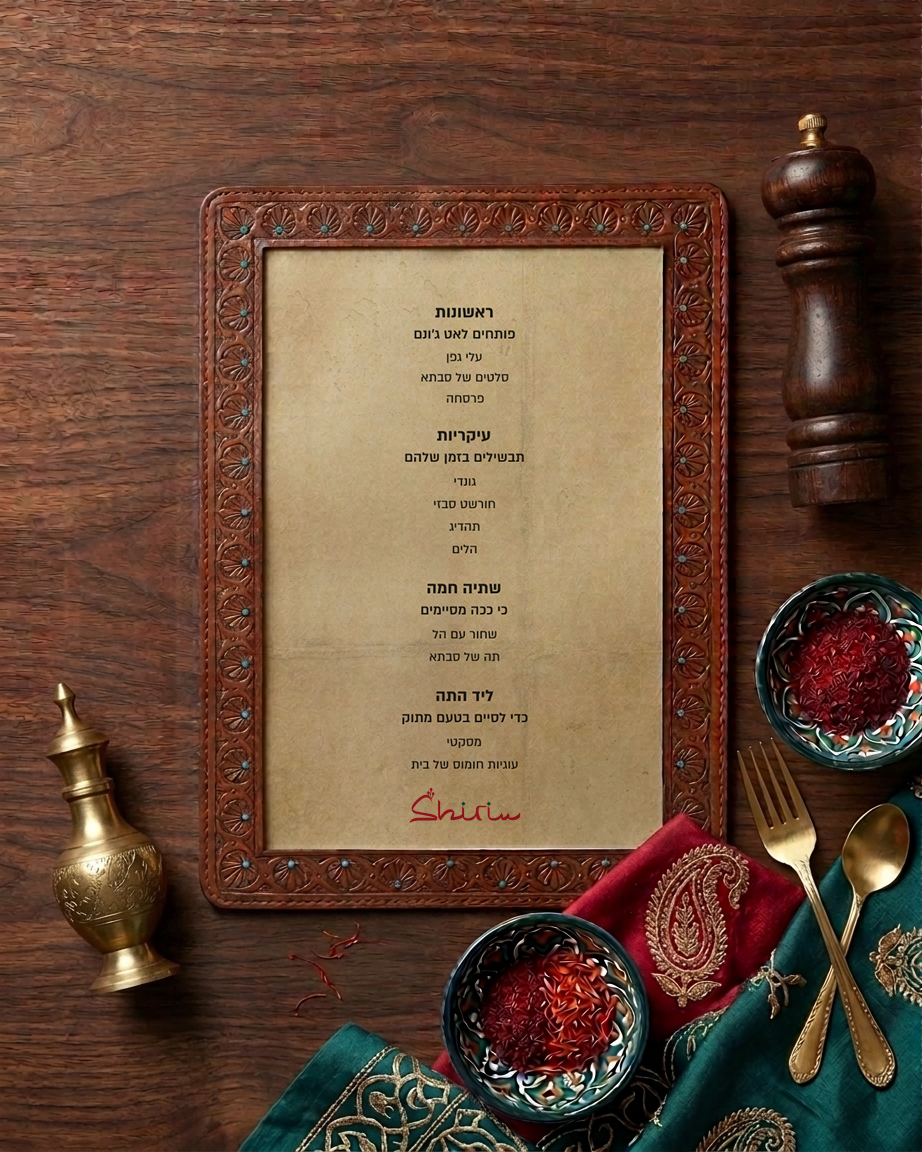 ראשונות
פותחים לאט ג'ונם
עלי גפן
סלטים של סבתא
פרסחה
עיקריות
תבשילים בזמן שלהם
גונדי
חורשט סבזי
תהדיג
הלים
שתיה חמה
כי ככה מסיימים
שחור עם הל
תה של סבתא
ליד התה
כדי לסיים בטעם מתוק
מסקטי
עוגיות חומוס של בית
Shirin